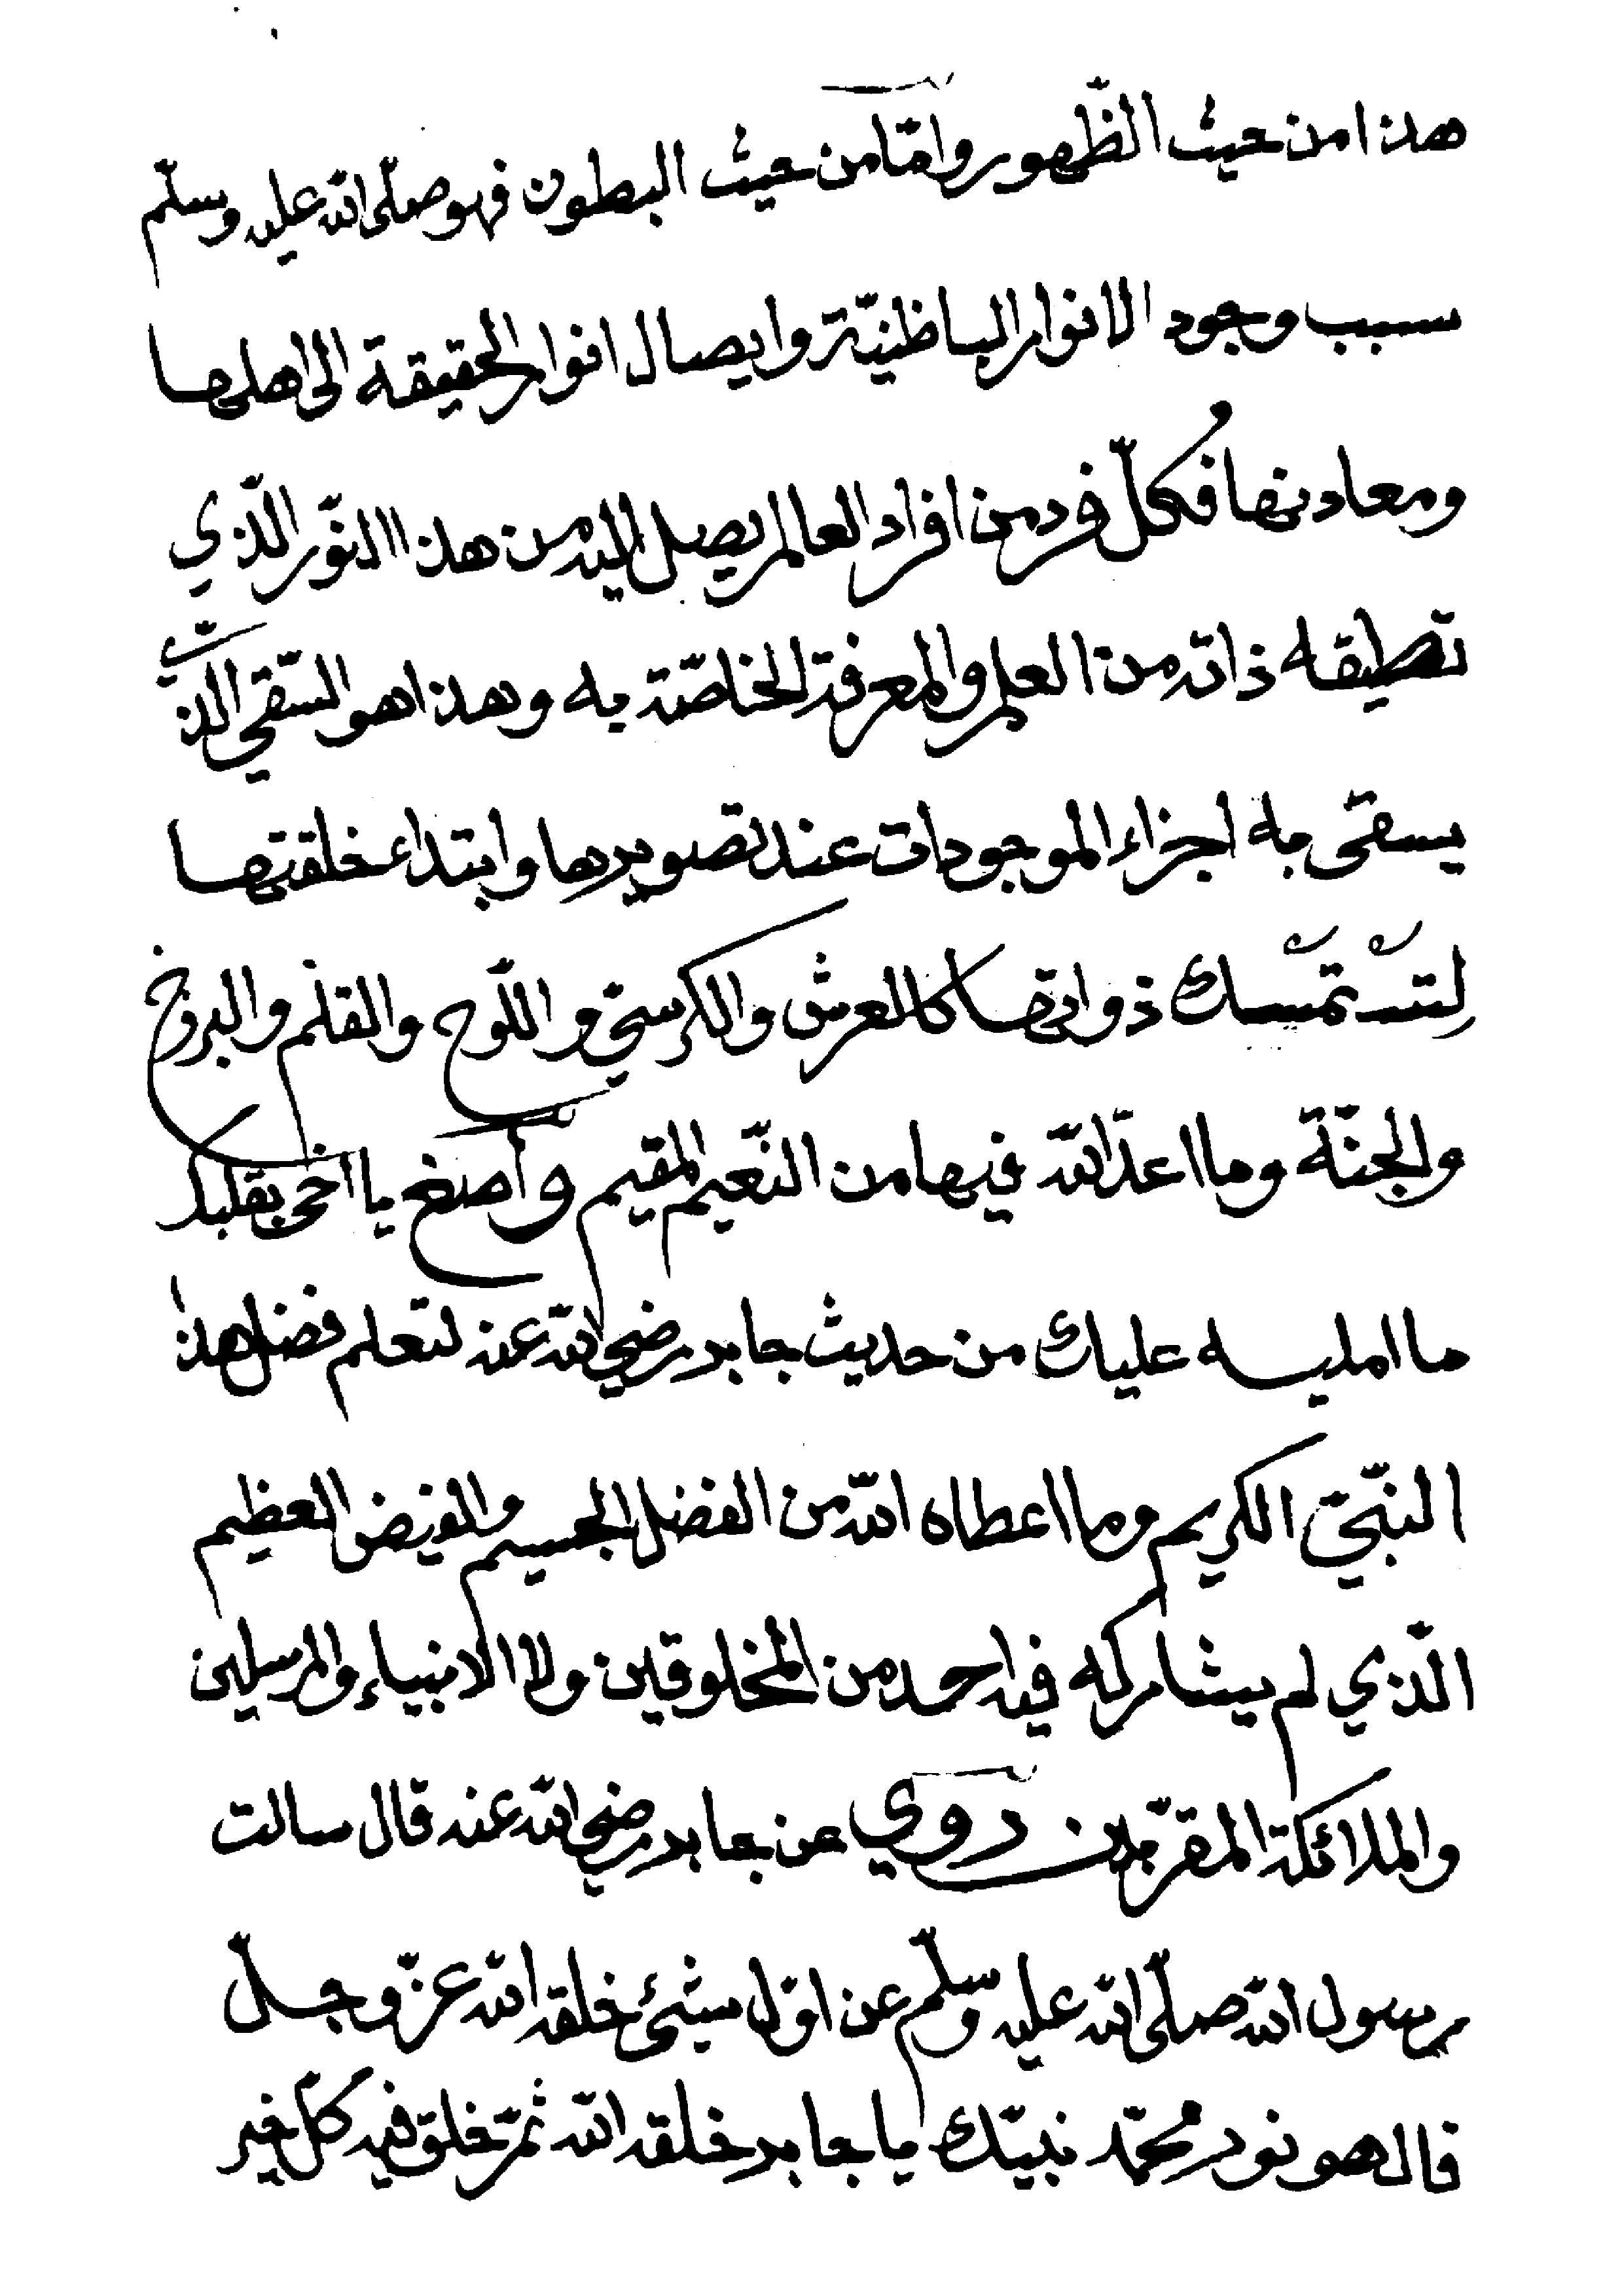 هذا من حيث الظّهور وامّا من حيث البطون فهو صلّى الله عليه وسلّم
سبب وجود الانوار الباطنيّة وايصال انوار الحقيقة الى اهلها
ومعادنها فكلّ فرد من افراد العالم يصل اليه من هذا النّور الّذي
تطيقه ذاته من العلم والمعرفة الخاصّة به وهذا هو السّقي الّذي
يسقى به اجزاء الموجودات عند تصويرها وابتداء خلقتها
لتستمسك ذواتها كالعرش والكرسيّ واللّوح والقلم والبرزخ
والجنّة وما اعدّ الله فيها من النّعيم المقيم وأصغ يا اخى بقلبك
ما امليه عليك من حديث جابر رضي الله عنه لتعلم فضل هذا
النبّيّ الكريم وما اعطاه الله من الفضل الجسيم والفيض العظيم
الّذي لم يشاركه فيه احد من المخلوقين ولا الانبياء والمرسلين
والملائكة المقرّبين روي عن جابر رضي الله عنه قال سالت
رسول الله صلّى الله عليه وسلّم عن اوّل شيئ خلقه الله عزّ وجلّ
قال هو نور محمّد نبيّك يا جابر خلقه الله ثمّ خلق فيه كلّ خير